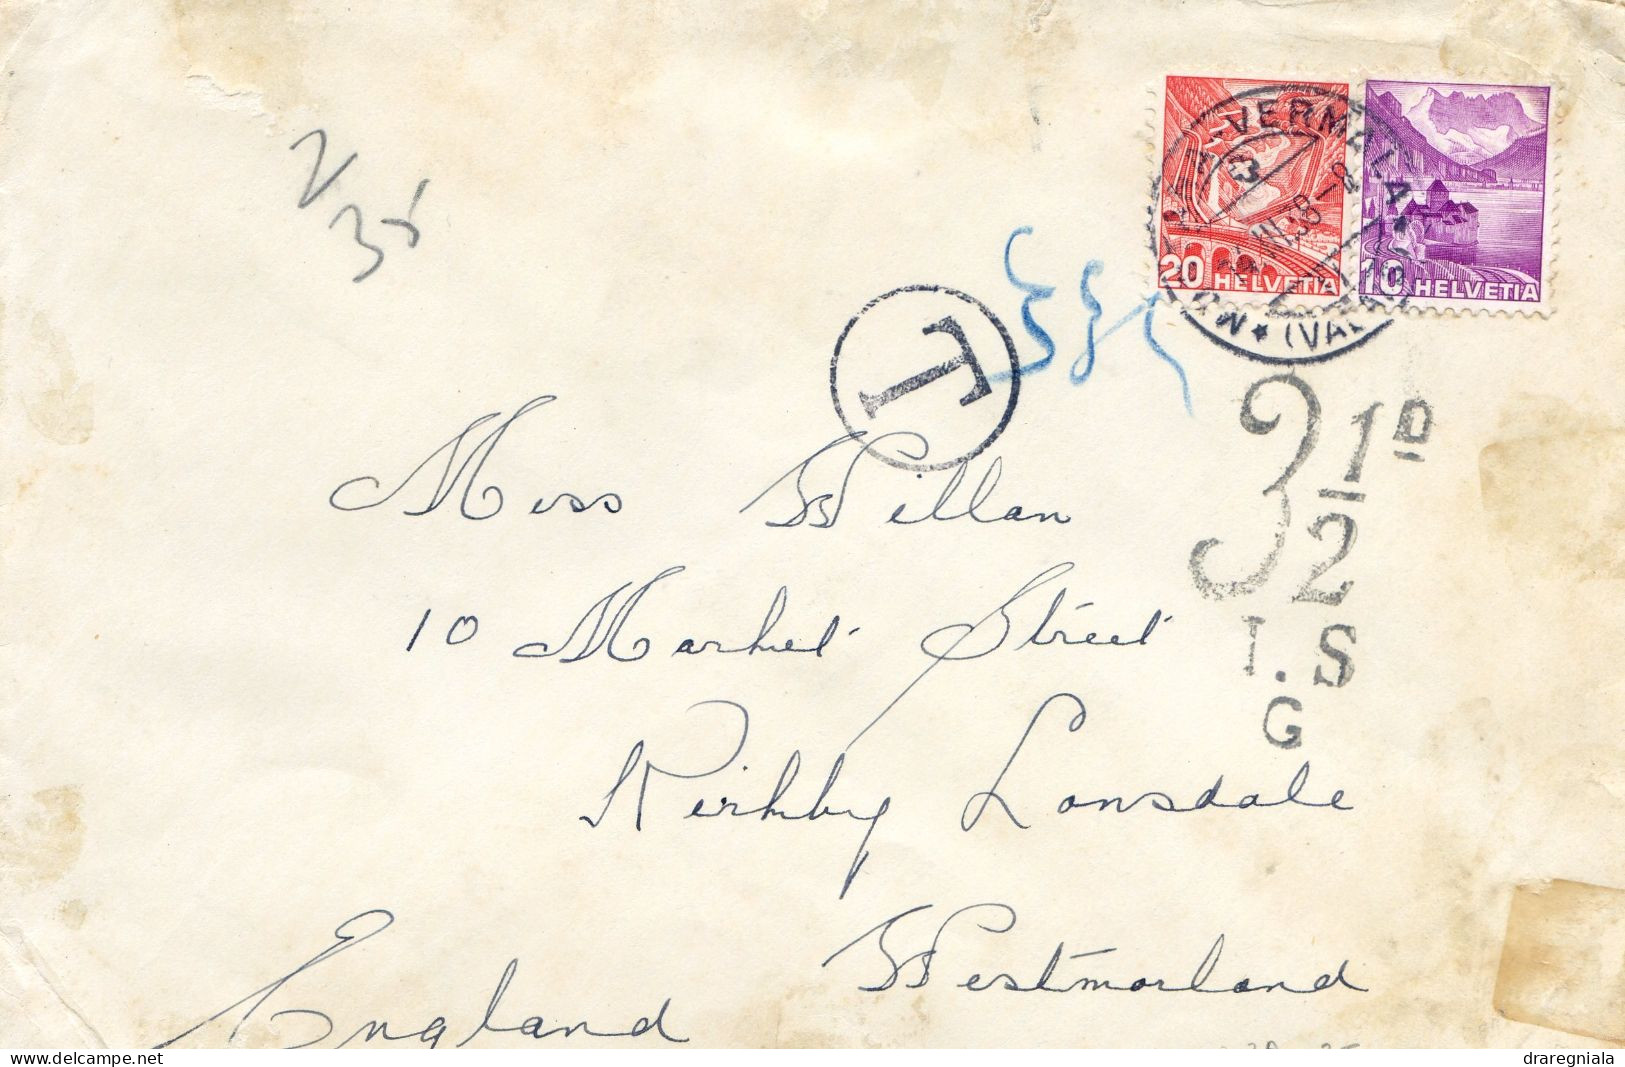 2/35
T
20 HELVETIA
10 HELVETIA
VERMALA
III.38
3 1/2 D
I.S
G
Miss Willan
10 Market Street
Kirkby Lonsdale
Westmorland
England
delcampe.net
draregniala